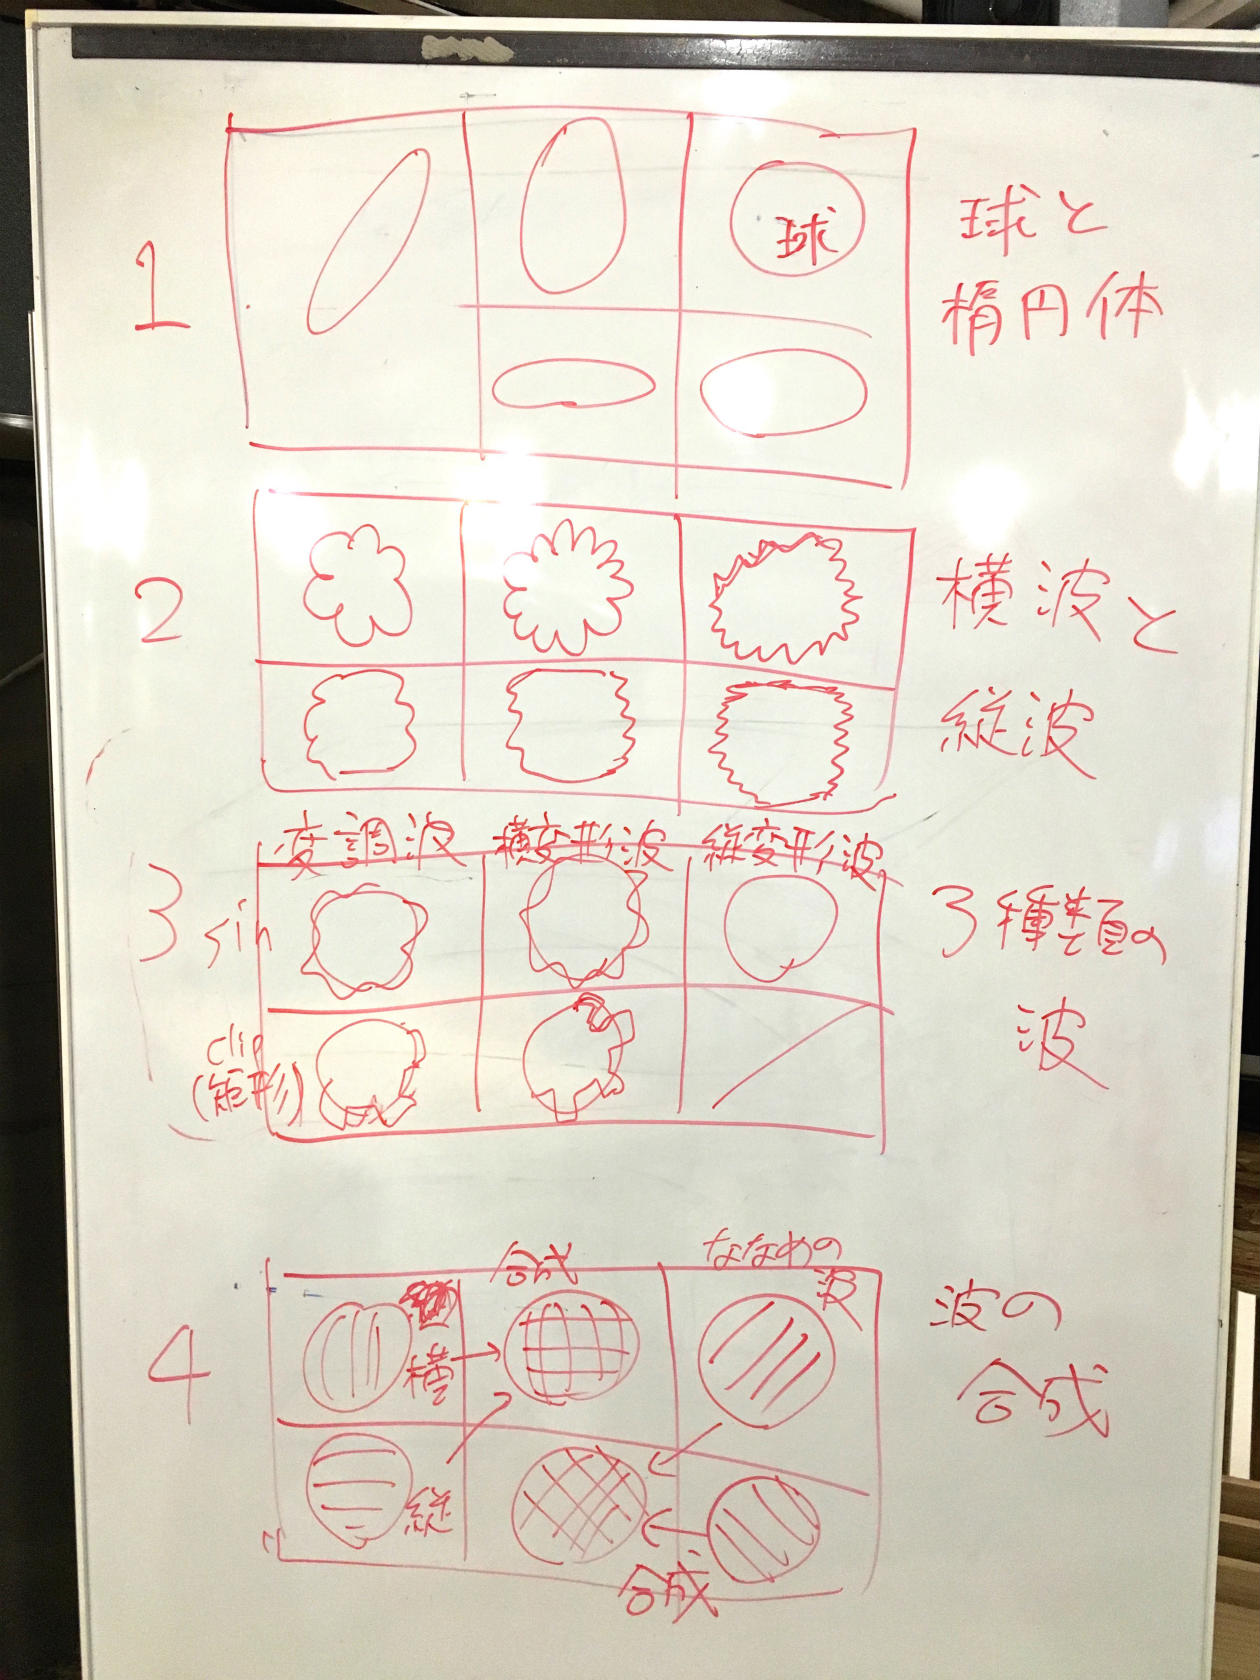 1
球
球と
楕円体
2
横波と
縦波
変調波 横変形波 縦変形波
3
sin
clip
(矩形)
3種類の
波
4
合成
ななめの
波
横
縦
合成
波の
合成